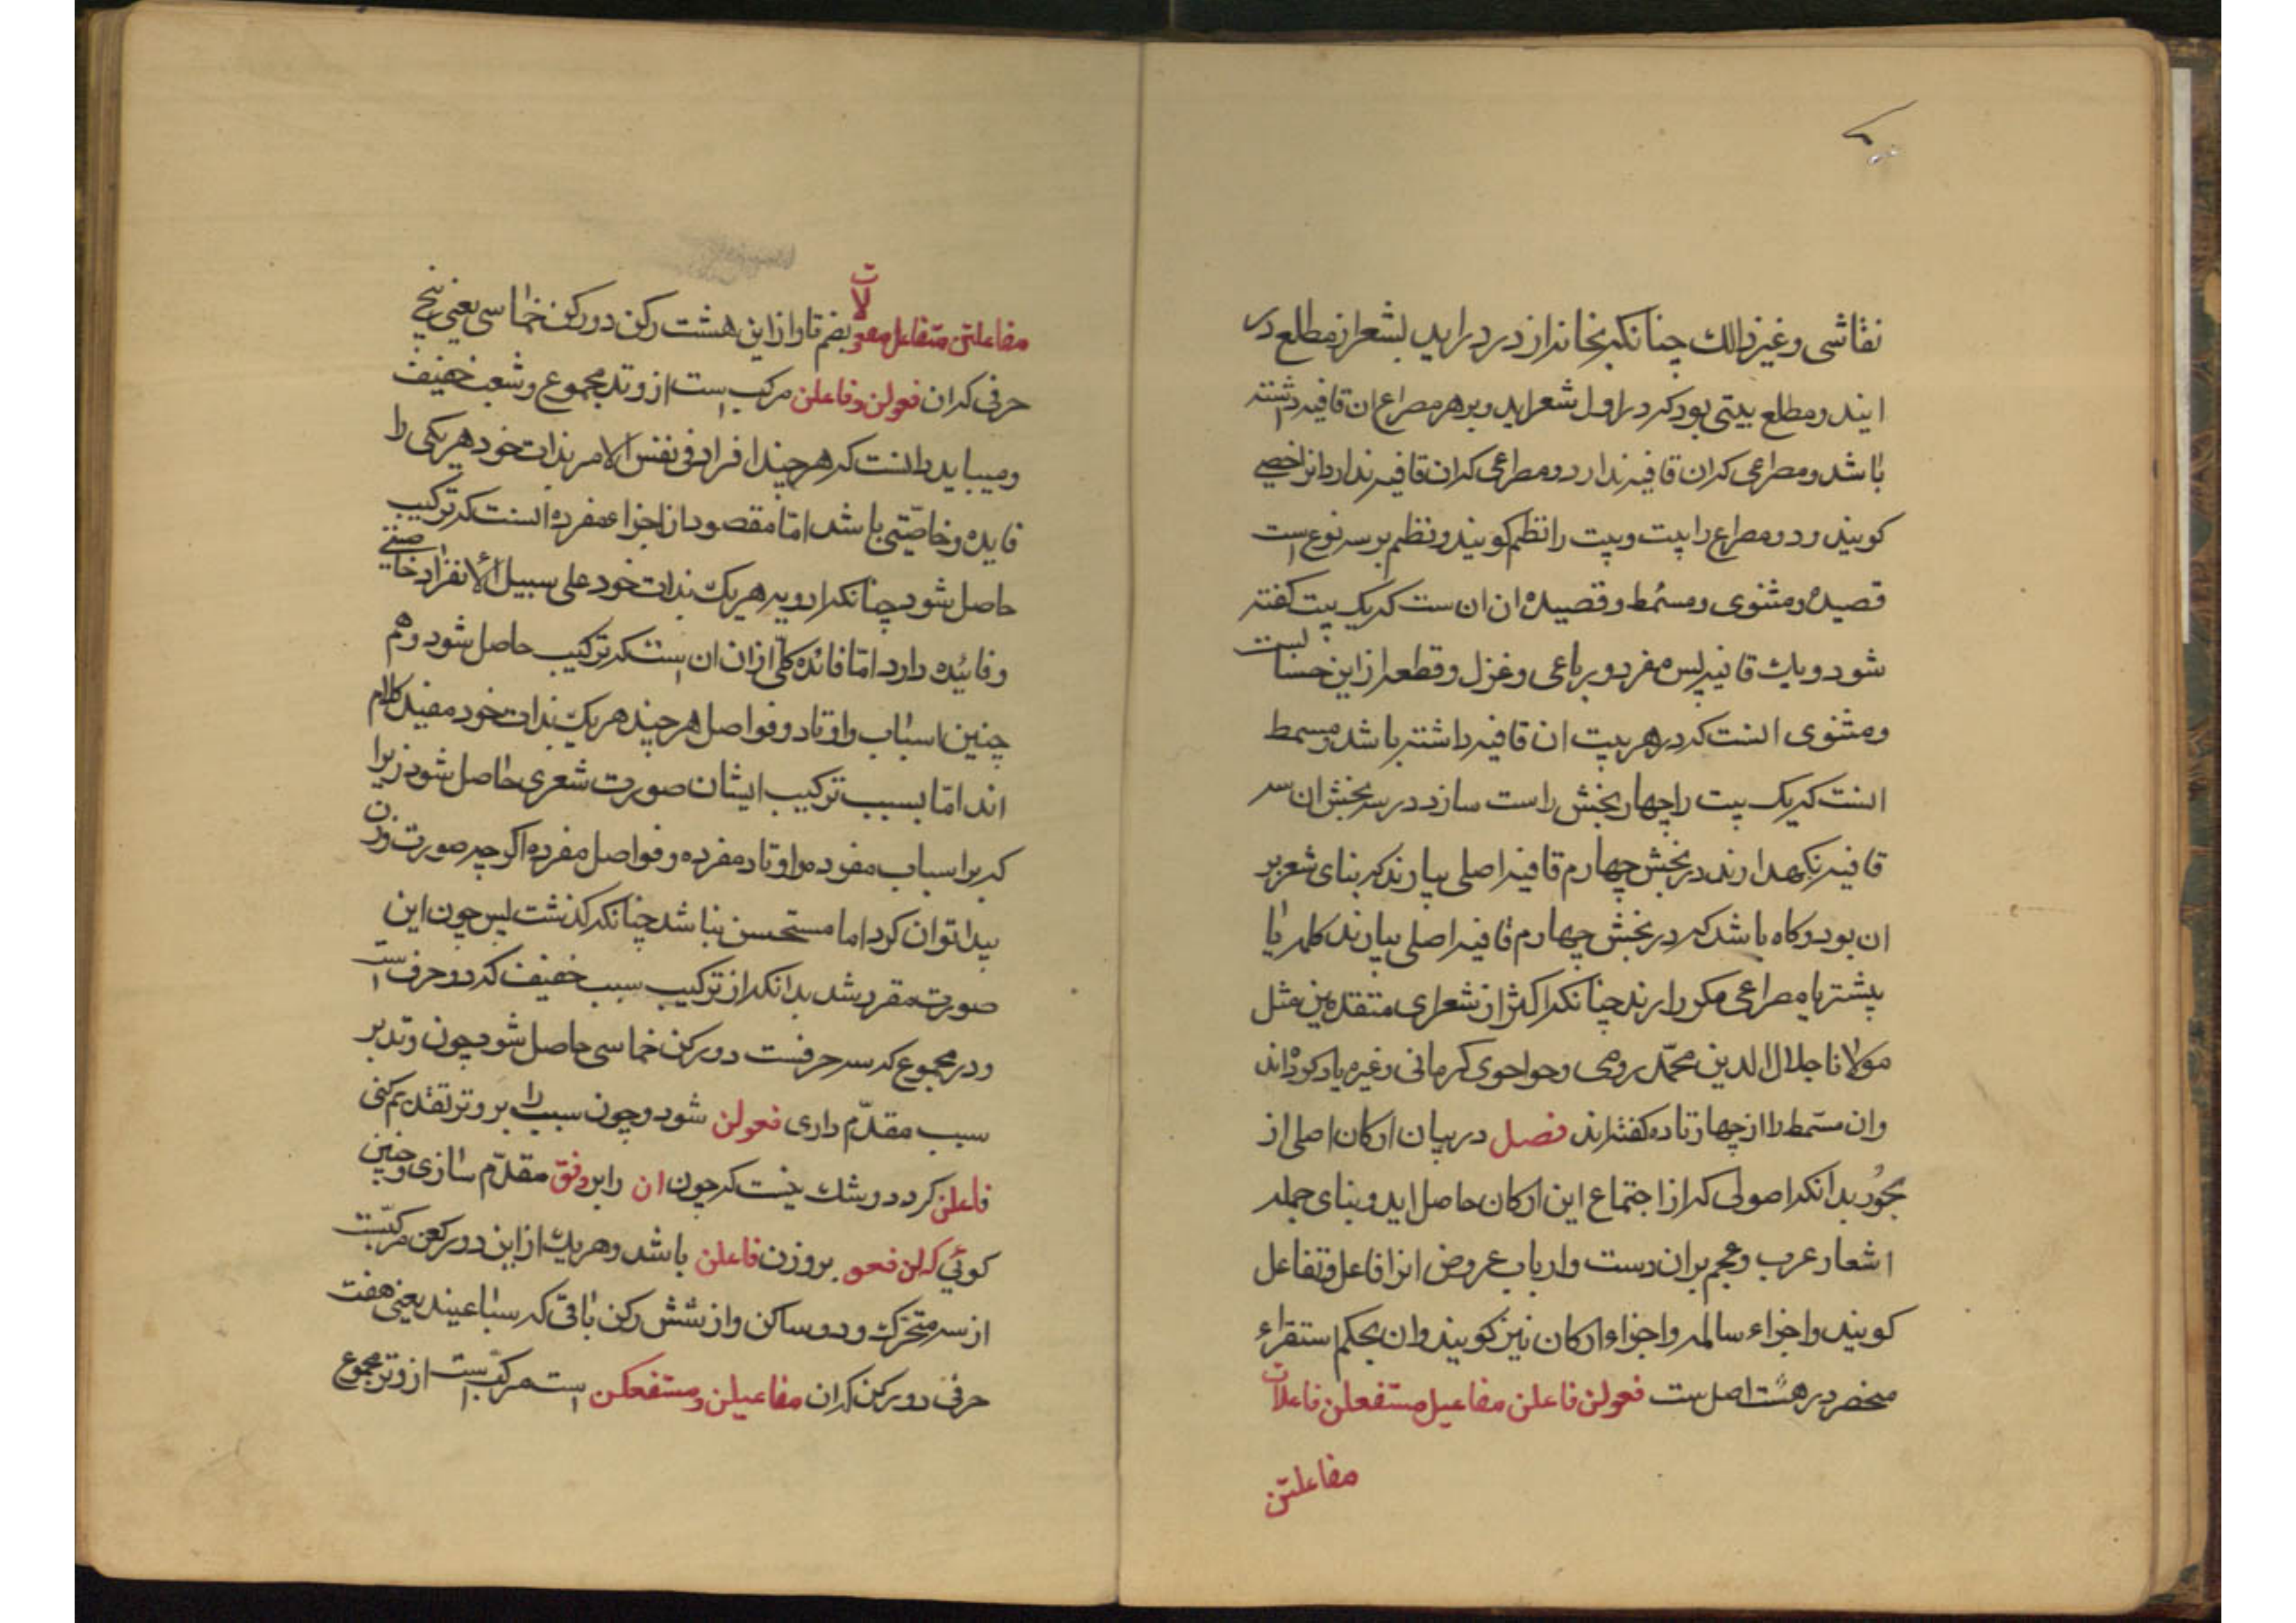 نقاشی و غیر ذالك چنانکه بخانه از در درایند بشعر از مطلع در
ایند و مطلع بیتی بود که در اول شعر اید و بر هر مصراع ان قافیه داشته
باشد و مصراعی که ان قافیه ندارد و مصراعی که ان قافیه ندارد انرا خصی
کویند و دو مصراع را بیت و بیت را نظم کویند و نظم بر سه نوع است
قصیده و مثنوی و مسمط و قصیده ان ان ست که یک بیت کفته
شود و یك قافیه پس مفرد و رباعی و غزل و قطعه از این حسابست
و مثنوی انست که در هر بیت ان قافیه داشته باشد و مسمط
انست که یک بیت را چهار بخش راست سازد در سه بخش ان سه
قافیه نکهدارند در بخش چهارم قافیه اصلی بیارند که بنای شعر بر
ان بود و کاه باشد که در بخش چهارم قافیه اصلی بیارند کلمه یا
بیشتر یا مصراعی مکرر ارند چنانکه اکثر از شعرای متقدمین مثل
مولانا جلال الدین محمّد رومی و حواجوی کرمانی و غیره یاد کرده‌اند
وان مسمّط را از چهار تا ده کفته‌اند فصل در بیان ارکان اصلی از
بحُور بدانکه اصولی که از اجتماع این ارکان حاصل اید و بنای جمله
اشعار عرب و عجم بران دست وارباب عروض انرا فاعل و تفاعل
کویند و اجزاء سالمه و اجزاء ارکان نیز کویند وان بحکم استقراء
منحصر در هشت اصل ست فعولن فاعلن مفاعیل مستفعلن فاعلات
مفاعلتن
مفاعلتن متفاعل مفعولات بضم تا و از این هشت رکن دو رکن خماسی یعنی پنج
حرفی که ان فعولن و فاعلن مرکب است از وتد مجموع و شعب خفیف
و میباید دانست که هر چند افراد فی نفس الامر بذات خود هریکی را
فایده و خاصّیتی باشد امّا مقصود از اجزاء مفرده انست که ترکیب
حاصل شود چنانکه ادویه هریك بذات خود علی سبیل الأنفراد خاصیتی
و فائیده دارد امّا فائده کلّی از ان ان است که ترکیب حاصل شود و هم
چنین اسباب و اوتاد و فواصل هر چند هریك بذات خود مفید کلام
اند امّا بسبب ترکیب ایشان صورت شعری حاصل شود زیرا
که بر اسباب مفرده و اوتاد مفرده و فواصل مفرده اکر چه صورت وزن
پیدا توان کرد اما مستحسن نباشد چنانکه کذشت پس چون این
صورت مقرر شد بدانکه از ترکیب سبب خفیف که دو حرف است
و در مجموع که سه حرفست دو رکن خماسی حاصل شود چون وتد بر
سبب مقدّم داری فعولن شود و چون سبب را بر وتر تقدیم کنی
فاعلن کردد و رشك نیست که چون ان را بر وفق مقدّم سازی و چنین
کوئی که لن فعو بر وزن فاعلن باشد و هریك از این دو رکن مرکّبست
از سه متحرك و دو ساکن و از شش رکن باقی که سباعیند یعنی هفت
حرفی دو رکن که ان مفاعیلن و مستفعلن است مرکّب است از وتر مجموع